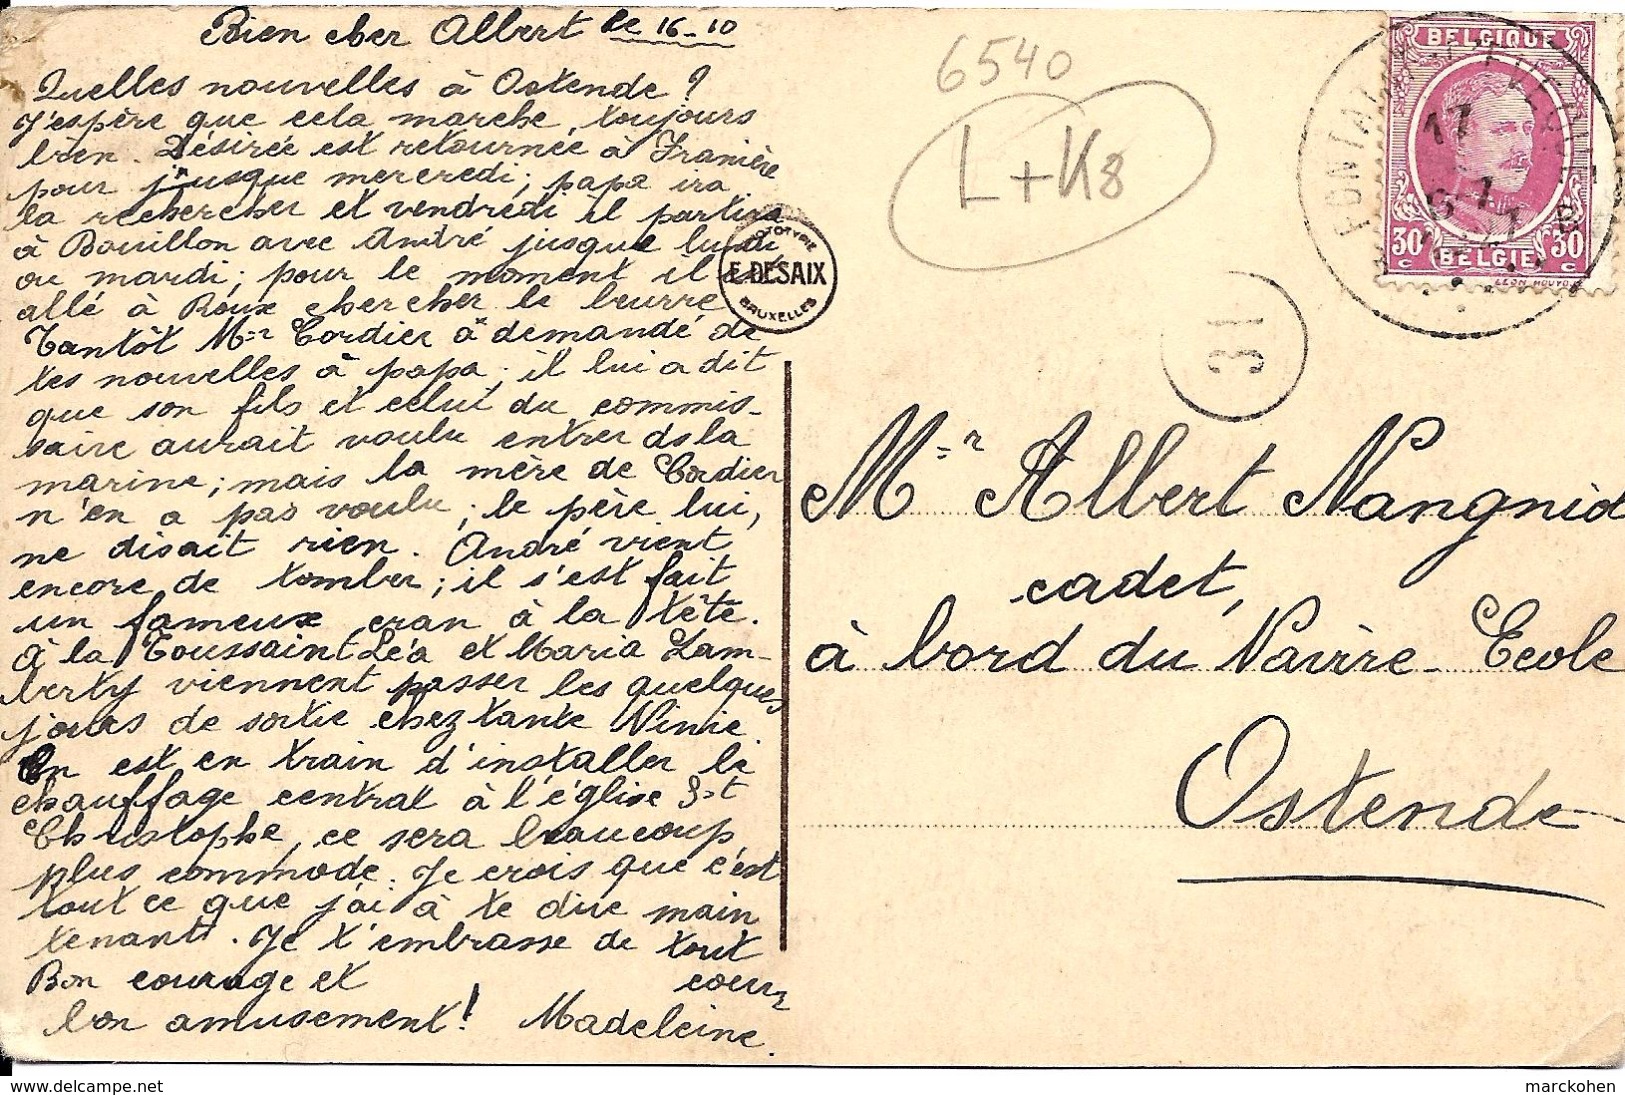 Bien cher Albert le 16-10
Quelles nouvelles à Ostende ?
J'espère que cela marche toujours
bien. Désirée est retournée à Franière
pour jusque mercredi; papa ira
la rechercher et vendredi il partira
à Bouillon avec André jusque lundi
ou mardi; pour le moment il est
allé à Roux chercher le beurre
Tantôt Mr Cordier a demandé de
tes nouvelles à papa; il lui a dit
que son fils et celui du commis-
saire aurait voulu entrer ds la
marine; mais la mère de Cordier
n'en a pas voulu; le père lui,
ne disait rien. André vient
encore de tomber; il s'est fait
un fameux cran à la tête.
À la Toussaint Léa et Maria Lam-
berty viennent passer les quelques
jours de sortie chez tante Ninie.
On est en train d'installer le
chauffage central à l'église St
Christophe, ce sera beaucoup
plus commode. Je crois que c'est
tout ce que j'ai à te dire main
tenant. Je t'embrasse de tout
coeur
Bon courage et
bon amusement! Madeleine.
E. DESAIX
BRUXELLES
6540
L+K8
31
BELGIQUE
17
30 c
BELGIË
30 c
Mr Albert Nangnid
cadet,
à bord du Navire-Ecole
Ostende
marckohen